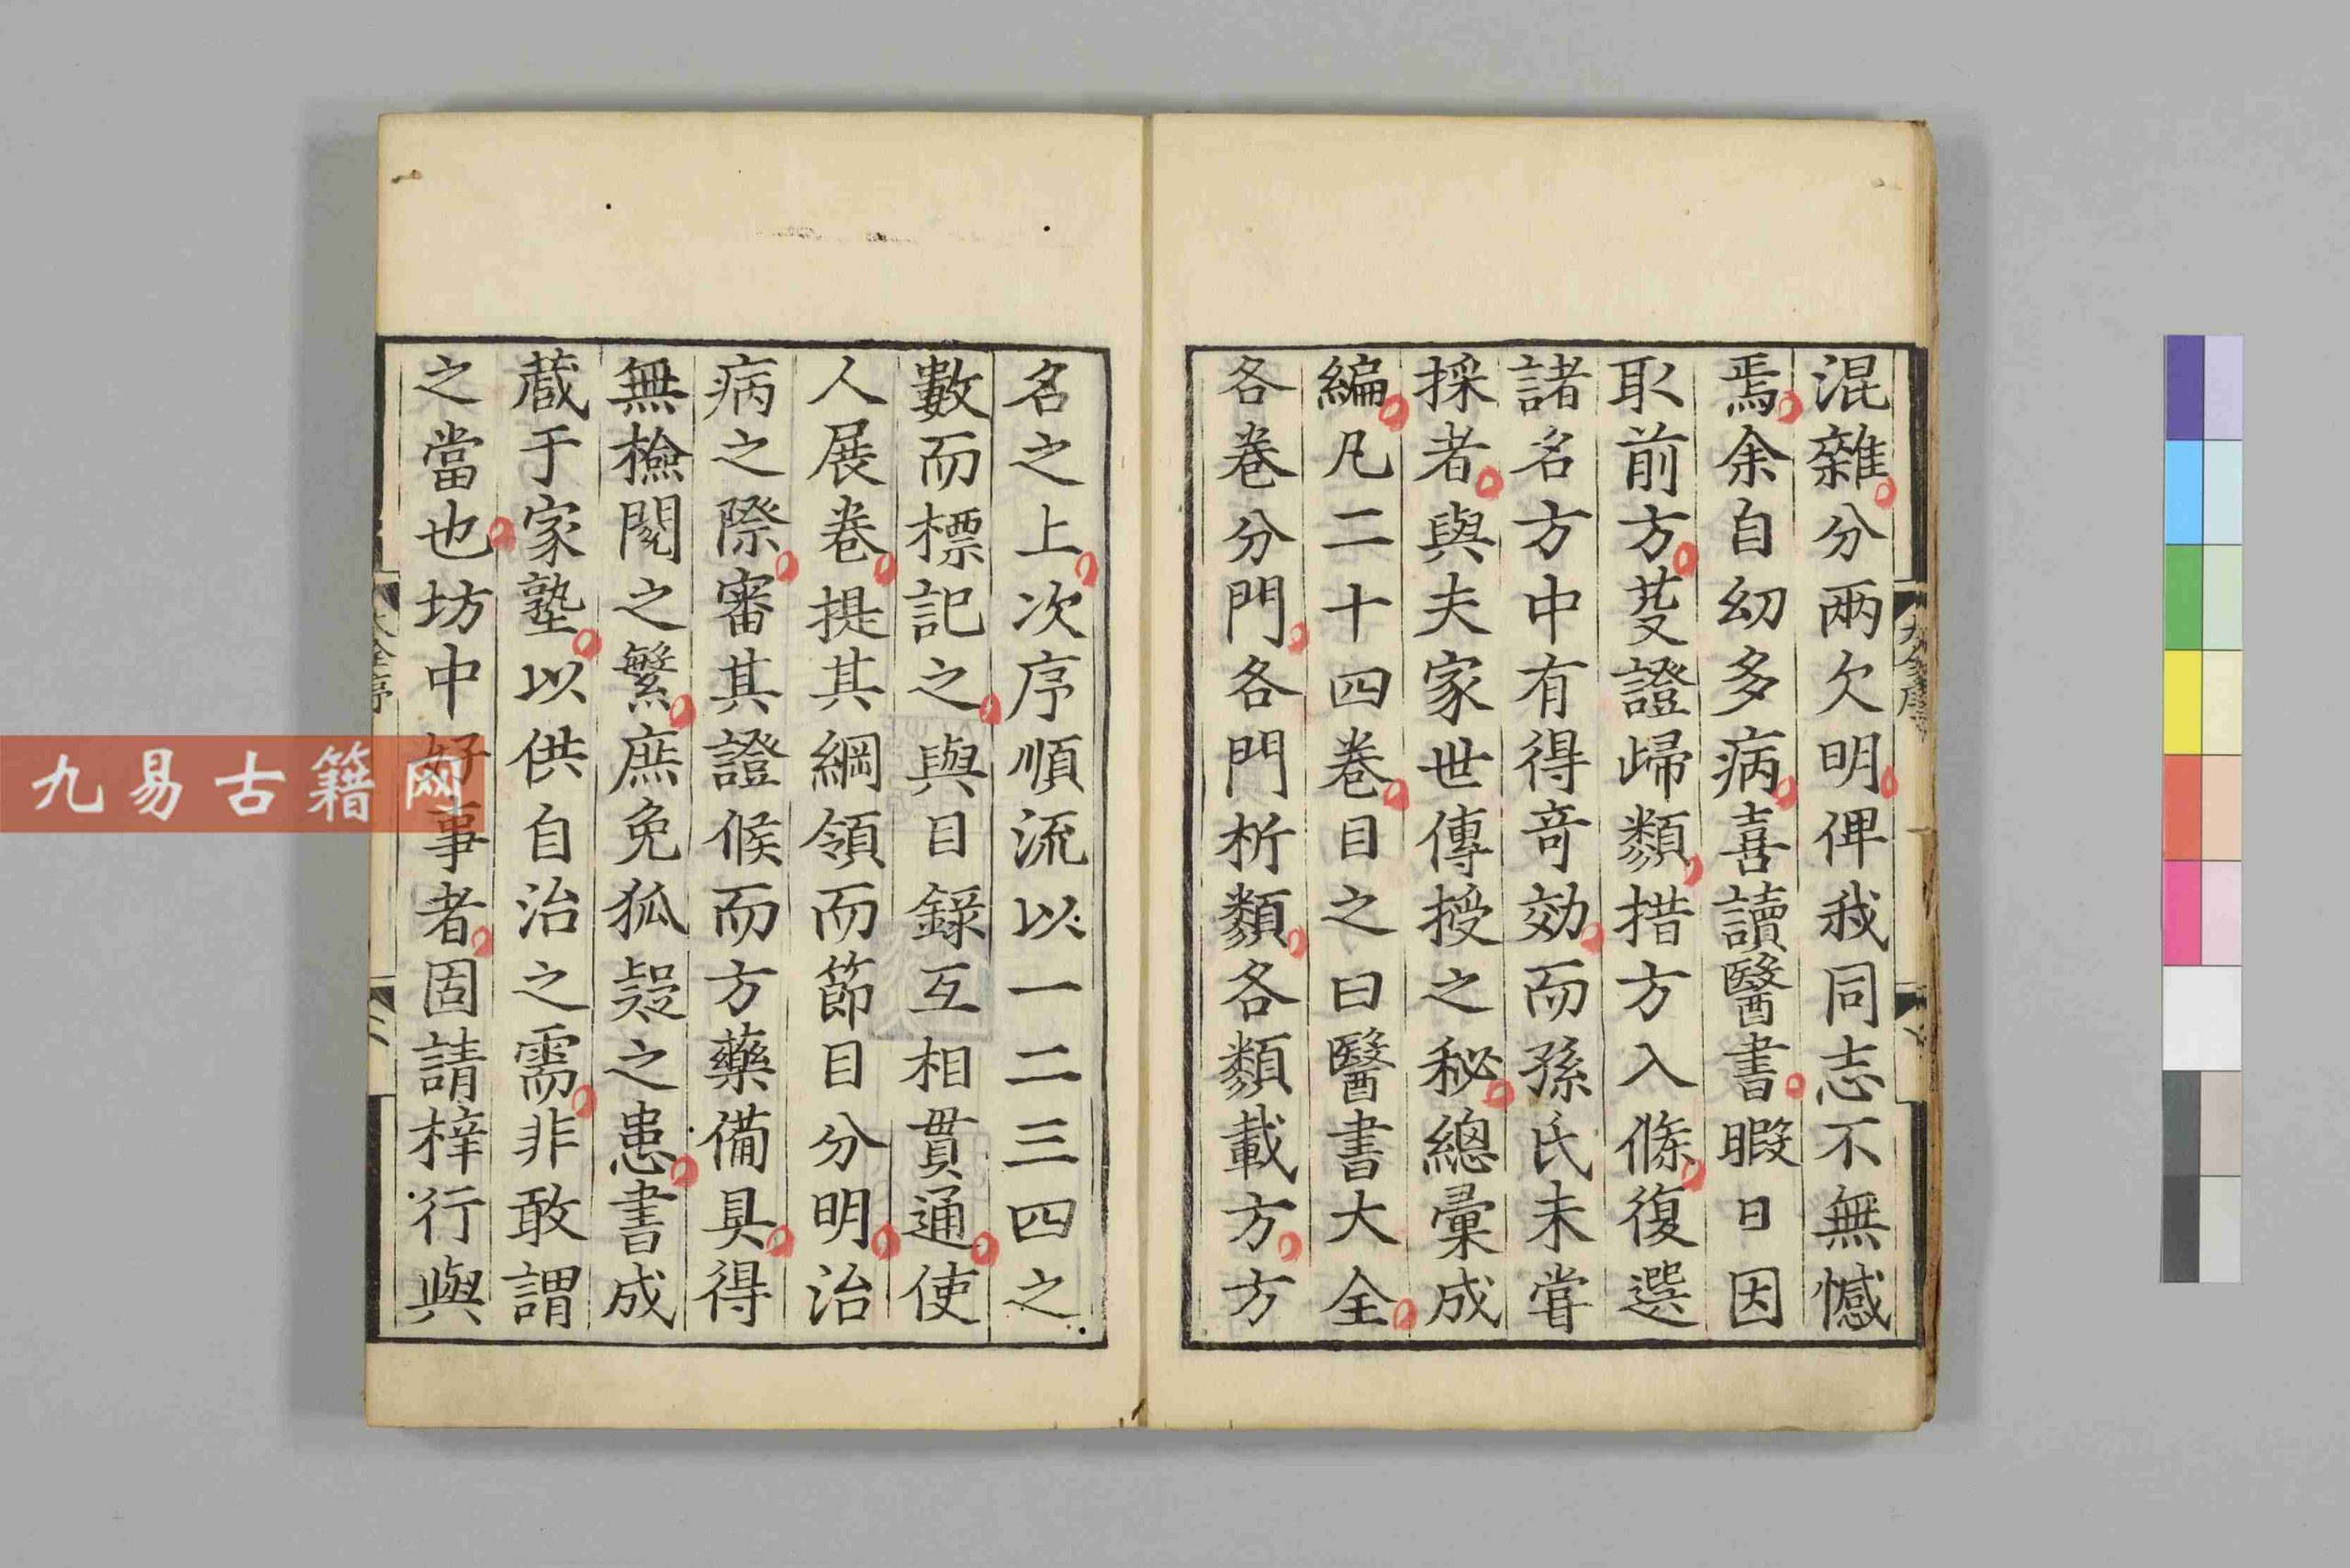 混雜分兩欠明俾我同志不無憾
焉余自幼多病喜讀醫書暇日因
取前方芟證歸類措方入條復選
諸名方中有得奇効而孫氏未嘗
採者與夫家世傳授之秘總彙成
編凡二十四卷目之曰醫書大全
各卷分門各門析類各類載方方
名之上次序順流以一二三四之
數而標記之與目錄互相貫通使
人展卷提其綱領而節目分明治
病之際審其證候而方藥備具得
無檢閱之繁庶免狐疑之患書成
藏于家塾以供自治之需非敢謂
之當也坊中好事者固請梓行與
九易古籍网